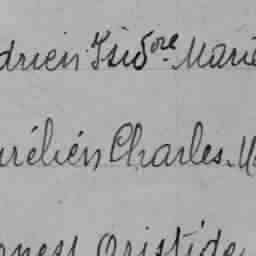 drien Isidore Marie
urélien Charles M
Aristide